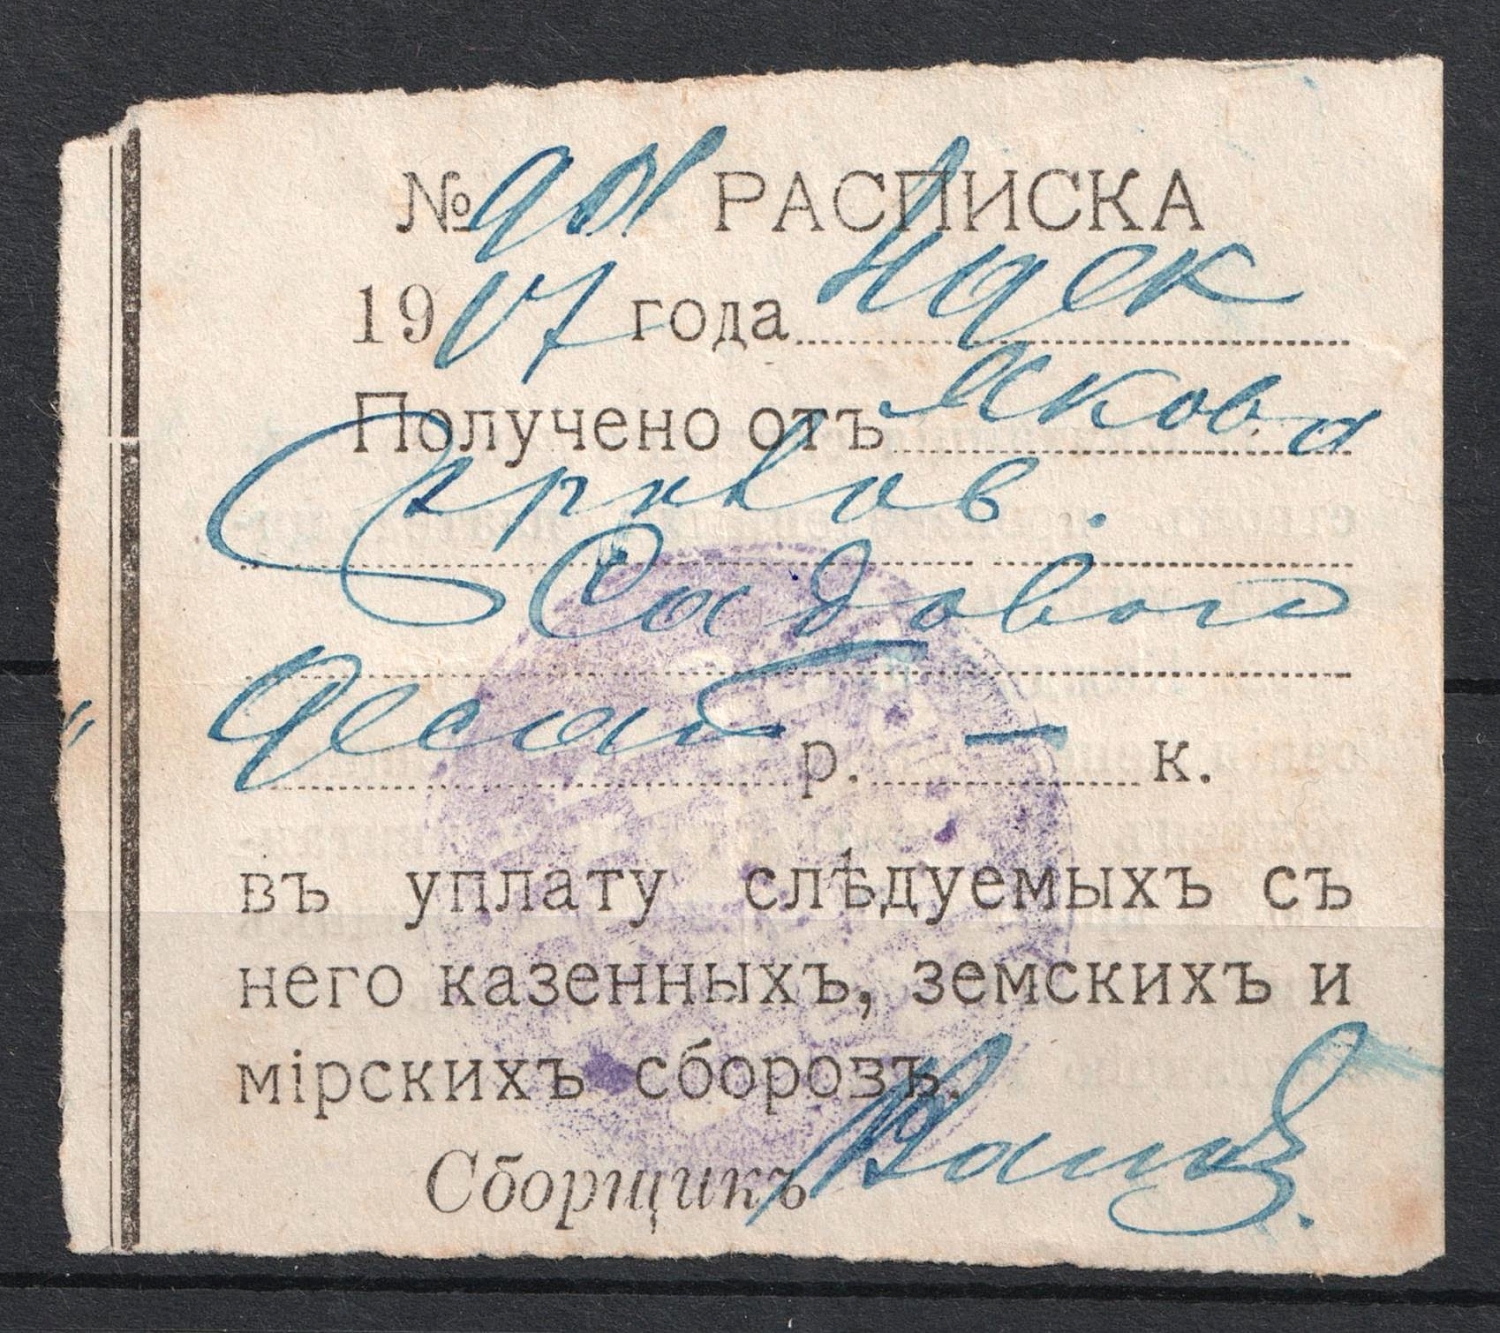 № 901 РАСПИСКА
1907 года 4 дек
Получено отъ Якова
Садового
Десят р. — к.
въ уплату слѣдуемыхъ съ
него казенныхъ, земскихъ и
мірскихъ сборовъ.
Сборщикъ